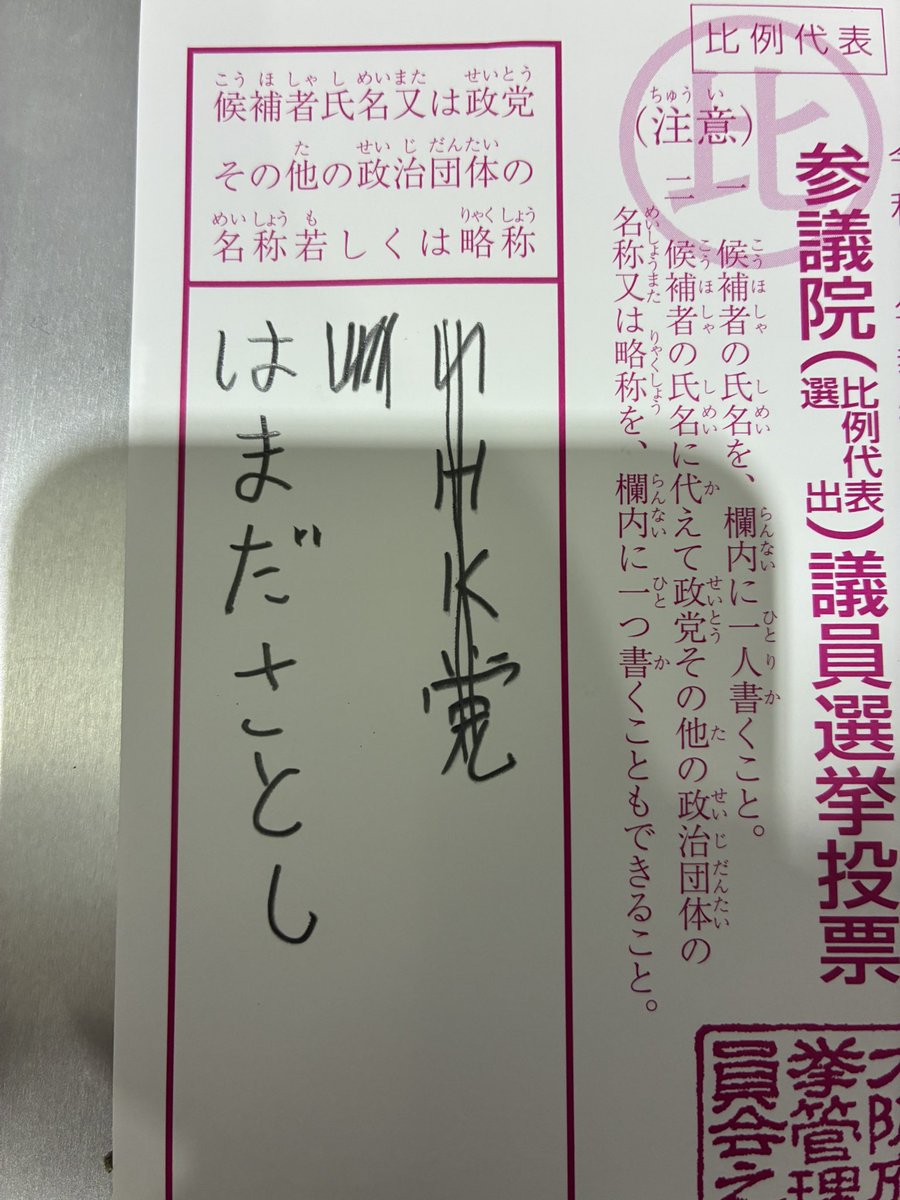 比例代表
比
参議院(比例代表選出)議員選挙投票
(注意)
一 候補者の氏名を、欄内に一人書くこと。
二 候補者の氏名に代えて政党その他の政治団体の
名称又は略称を、欄内に一つ書くこともできること。
候補者氏名又は政党
その他の政治団体の
名称若しくは略称
HK党
はまださとし
挙管理
員会之